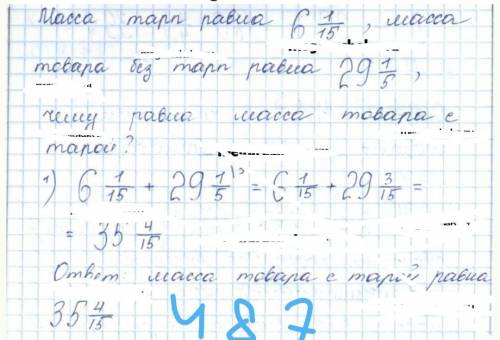 Масса тары равна 6 1/15, масса
товара без тары равна 29 1/5,
чему равна масса товара с
тарой?
1) 6 1/15 + 29 1/5 ^3 = 6 1/15 + 29 3/15 =
= 35 4/15
Ответ масса товара с тарой равна
35 4/15 487